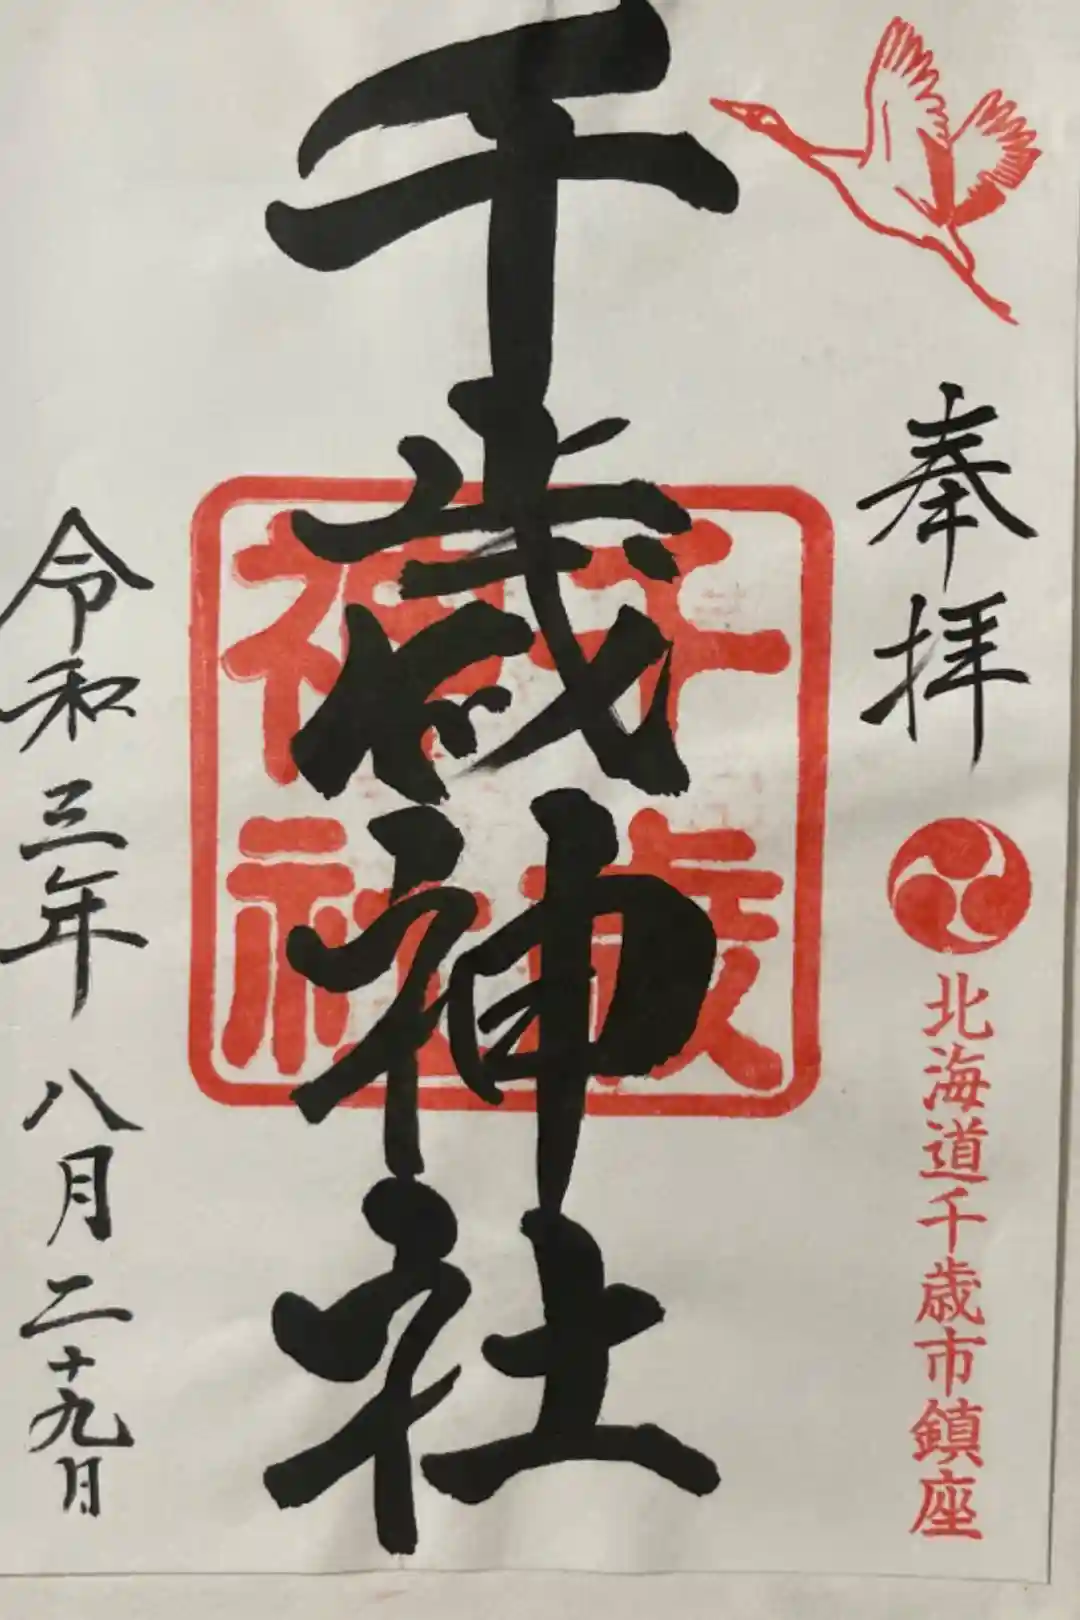 奉拝
北海道千歳市鎮座
千歳神社
千歳
神社
令和三年 八月二十九日